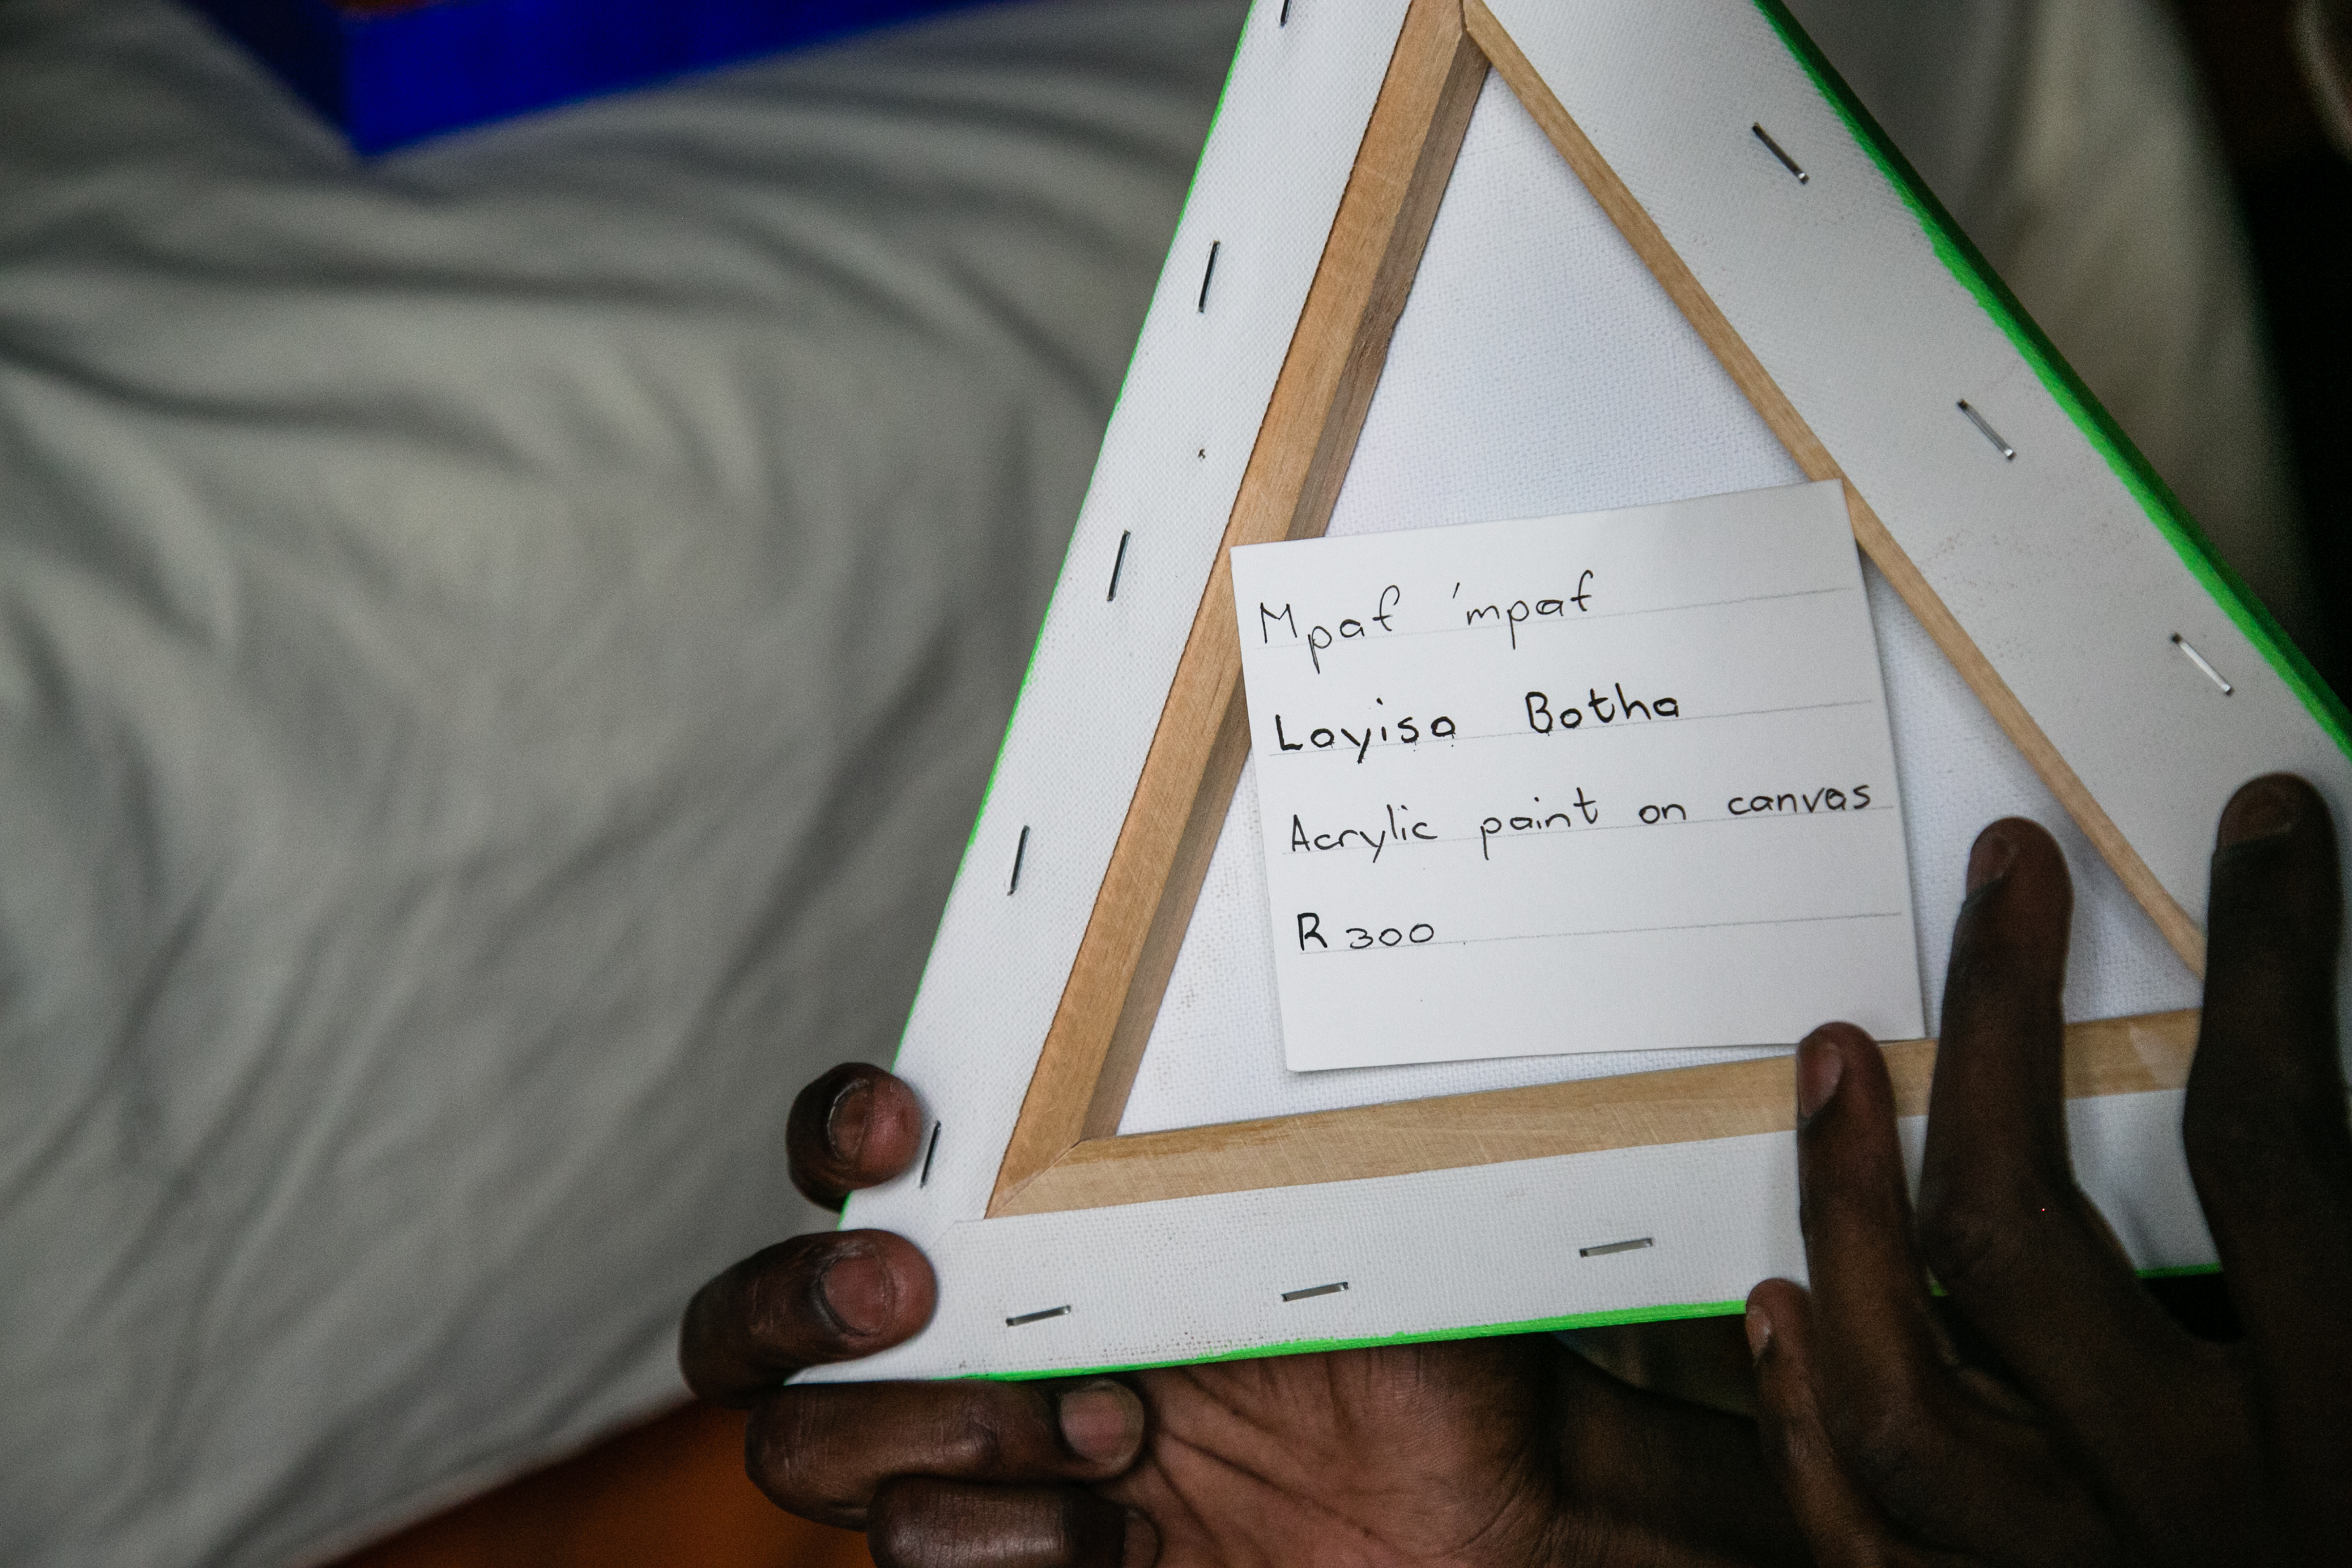 Mpaf 'mpaf
Loyiso Botha
Acrylic paint on canvas
R300